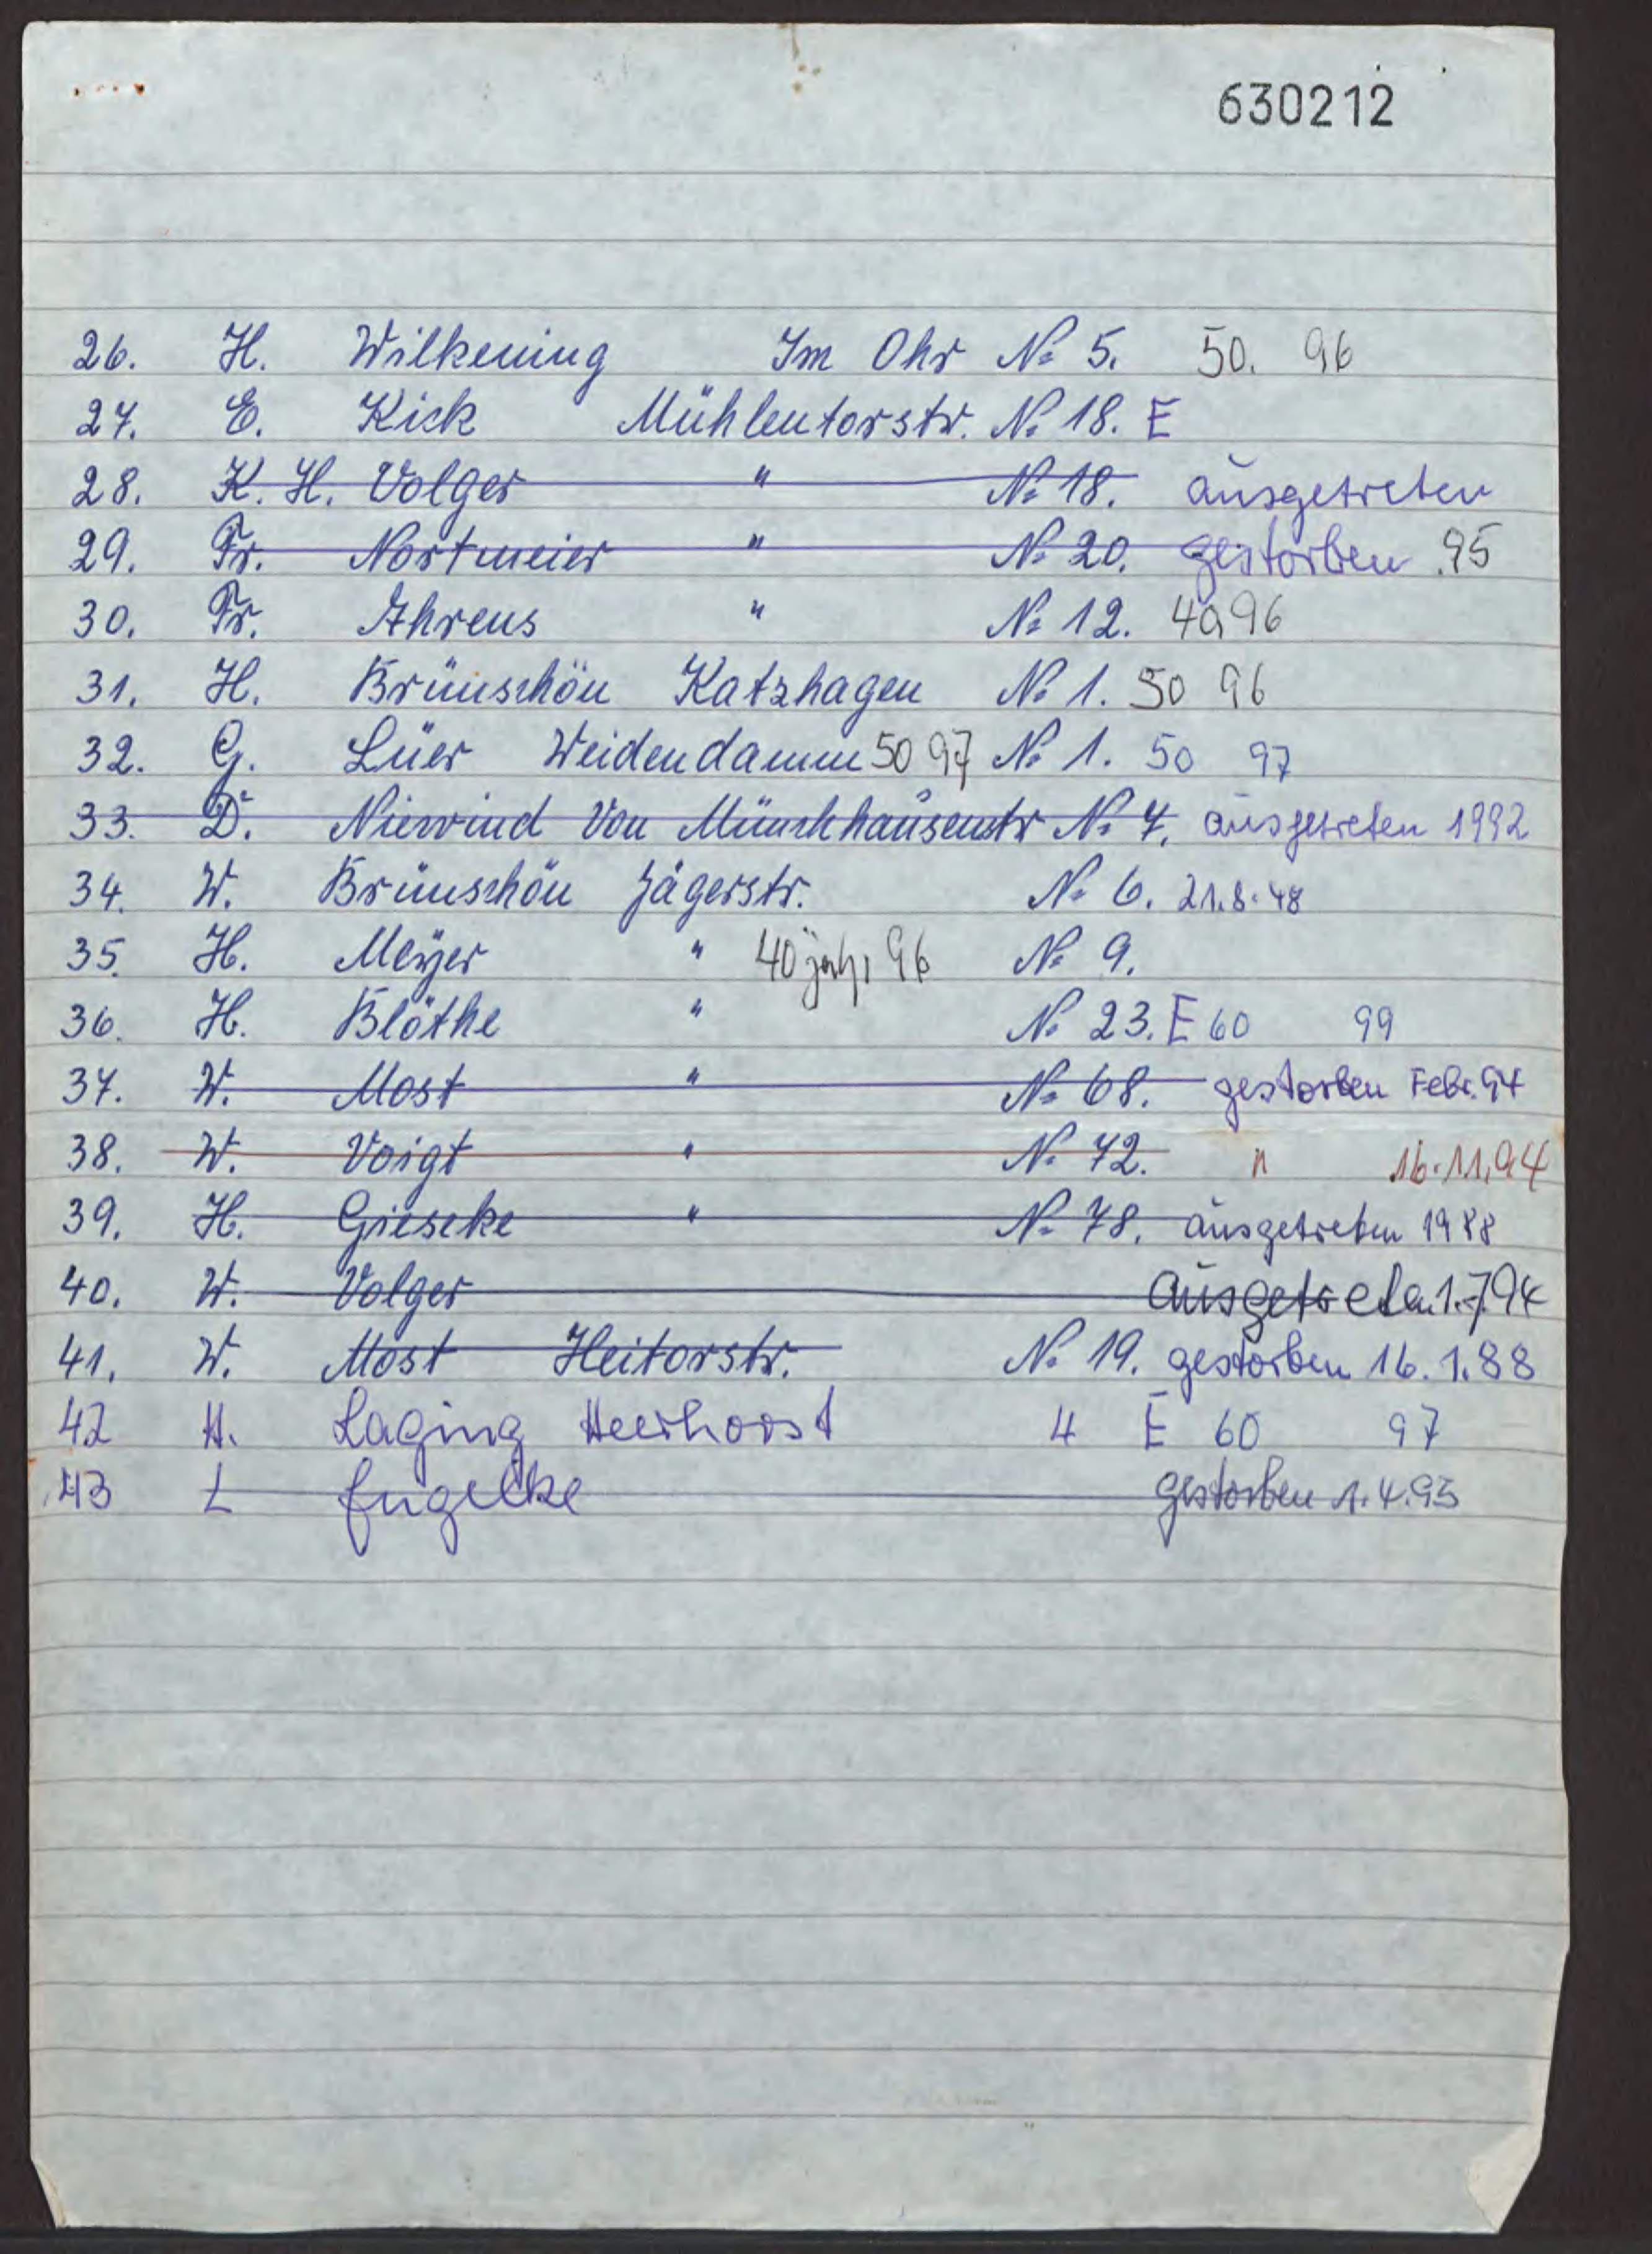 630212
26. H. Wilkening Im Ohr № 5. 50. 96
27. E. Kick Mühlentorstr. № 18. E
28. K. H. Volger " № 18. ausgetreten
29. Fr. Nortmeier " № 20. gestorben .95
30. Fr. Ahrens " № 12. 40 96
31. H. Brünschön Katzhagen № 1. 50 96
32. G. Lüer Weidendamm 50 97 № 1. 50 97
33. D. Nierwind Von Münchhausenstr № 7. ausgetreten 1992
34. W. Brünschön Jägerstr. № 6. 21.8.48
35. H. Meyer " 40 jähr 96 № 9.
36. H. Blöthe " № 23. E 60 99
37. W. Most " № 68. gestorben Febr. 94
38. W. Voigt " № 72. " 16.11.94
39. H. Gieseke " № 78. ausgetreten 1988
40. W. Volger ausgetreten 1.7.94
41. W. Most Heitorstr. № 19. gestorben 16.1.88
42 H. Laging Heerhorst 4 E 60 97
43 L Engelke gestorben 1.4.93